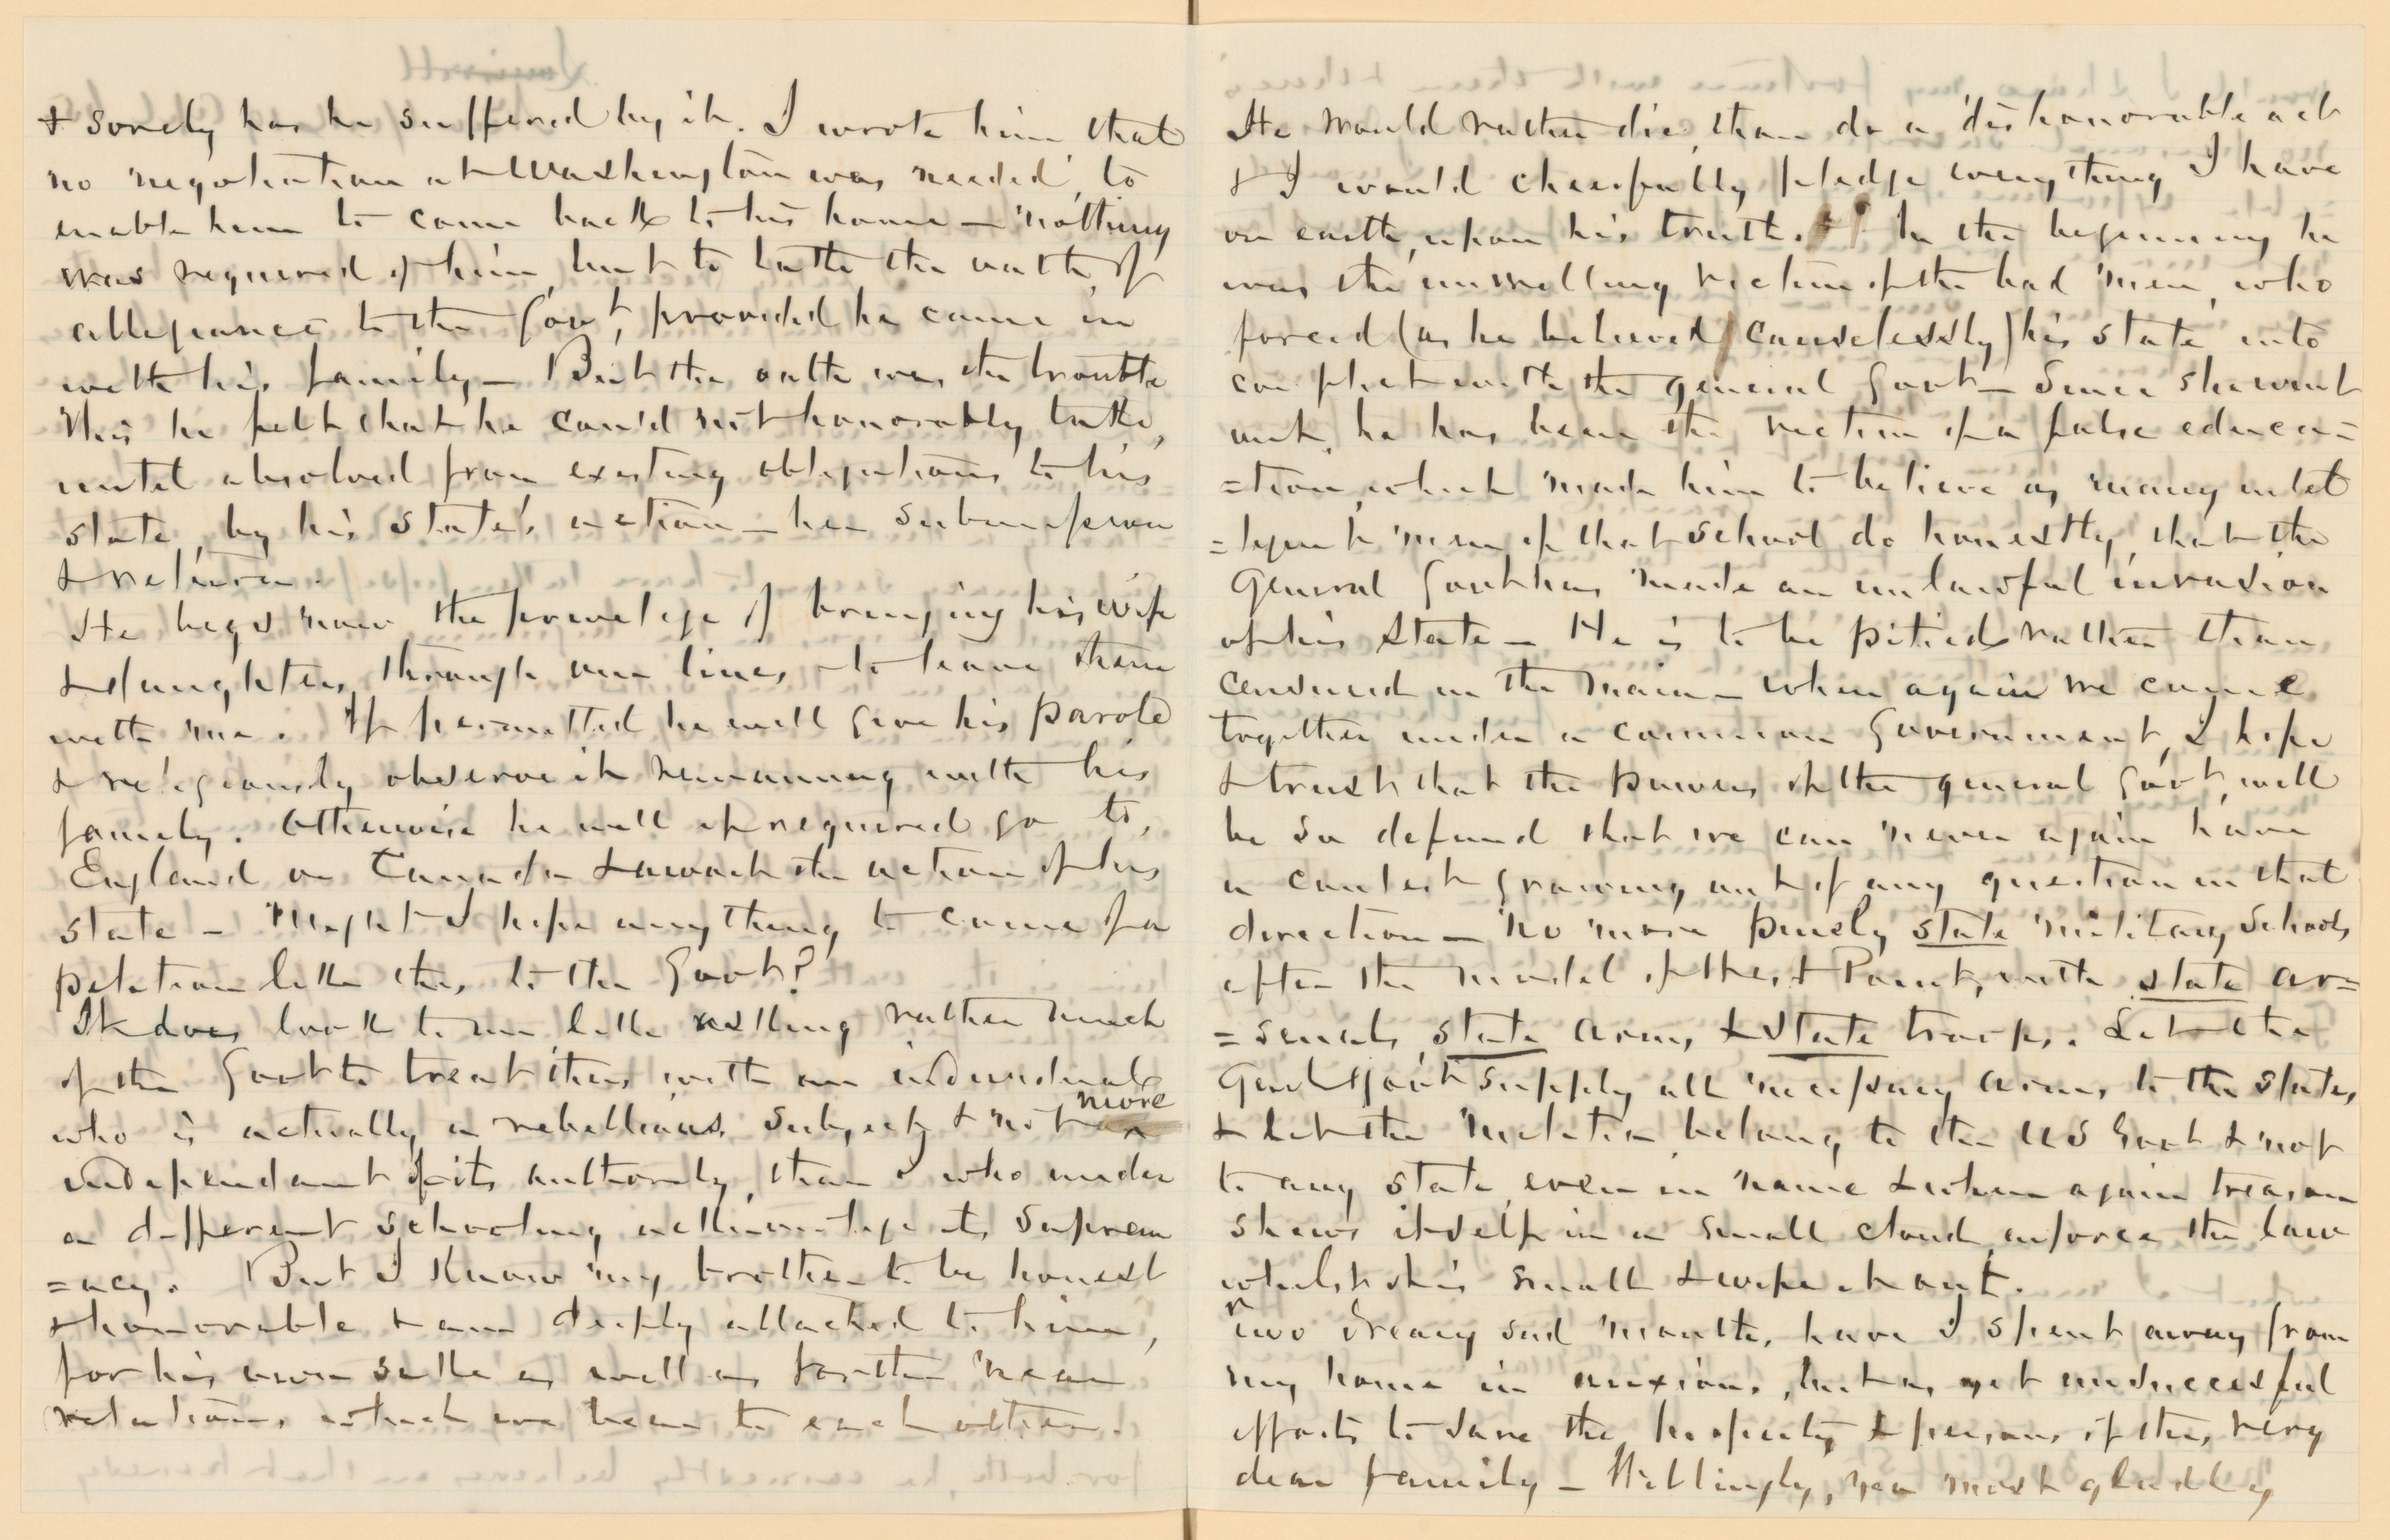 & sorely has he suffered by it. I wrote him that
no negotiation at Washington was needed, to
enable him to come back to his home – nothing
was required of him, but to take the oath of
allegiance to the Govt, provided he came in
with his family – But the oath was the trouble
This he felt that he could not honorably take,
until absolved from existing obligations to his
state, by his state's action – her submission
& return.
He begs now the privelege of bringing his wife
& daughters through our lines – to leave them
with me. If permitted he will give his parole
& religiously observe it remaining with his
family. Otherwise he will if required go to,
England or Canada & await the action of his
state – Might I hope anything to come of a
petition like this to the Govt?
It does look to me like asking rather much
of the Govt to treat thus with an individual
who is actually a rebellious subject & not more
independant of its authority, than I who under
a different schooling acknowledge its suprem
=acy. But I know my brother to be honest
& honorable & am deeply attached to him,
for his own sake as well as for the near
relations which we bear to each other.
He would rather die, than do a dishonorable act
& I would cheerfully pledge everything I have
on earth, upon his truth. In the beginning he
was the unwilling victim of the bad men, who
forced (as he believed causelessly) his state into
conflict with the general Govt – Since she went
out, he has been the victim of a false educa=
=tion, which made him to believe as many intel
=ligent men of that school do honestly, that the
General Govt has made an unlawful invasion
of his State – He is to be pitied rather than
censured in the main – when again we come
together under a common Government, I hope
& trust that the powers of the general Govt, will
be so defined that we can never again have
a contest growing out of any question in that
direction – no more purely state military schools
after the model of West Point, with state ar=
=senals, state arms, & state troops. Let the
Genl Govt supply all necessary arms to the states,
& let the militia belong to the US Govt & not
to any state, even in name & when again treason
shews itself in a small cloud, enforce the law
whilst it is small & wipe it out.
Two dreary sad months, have I spent away from
my home in anxious, but as yet unsuccessful
efforts to save the property & persons of this very
dear family – Willingly, yea most gladly